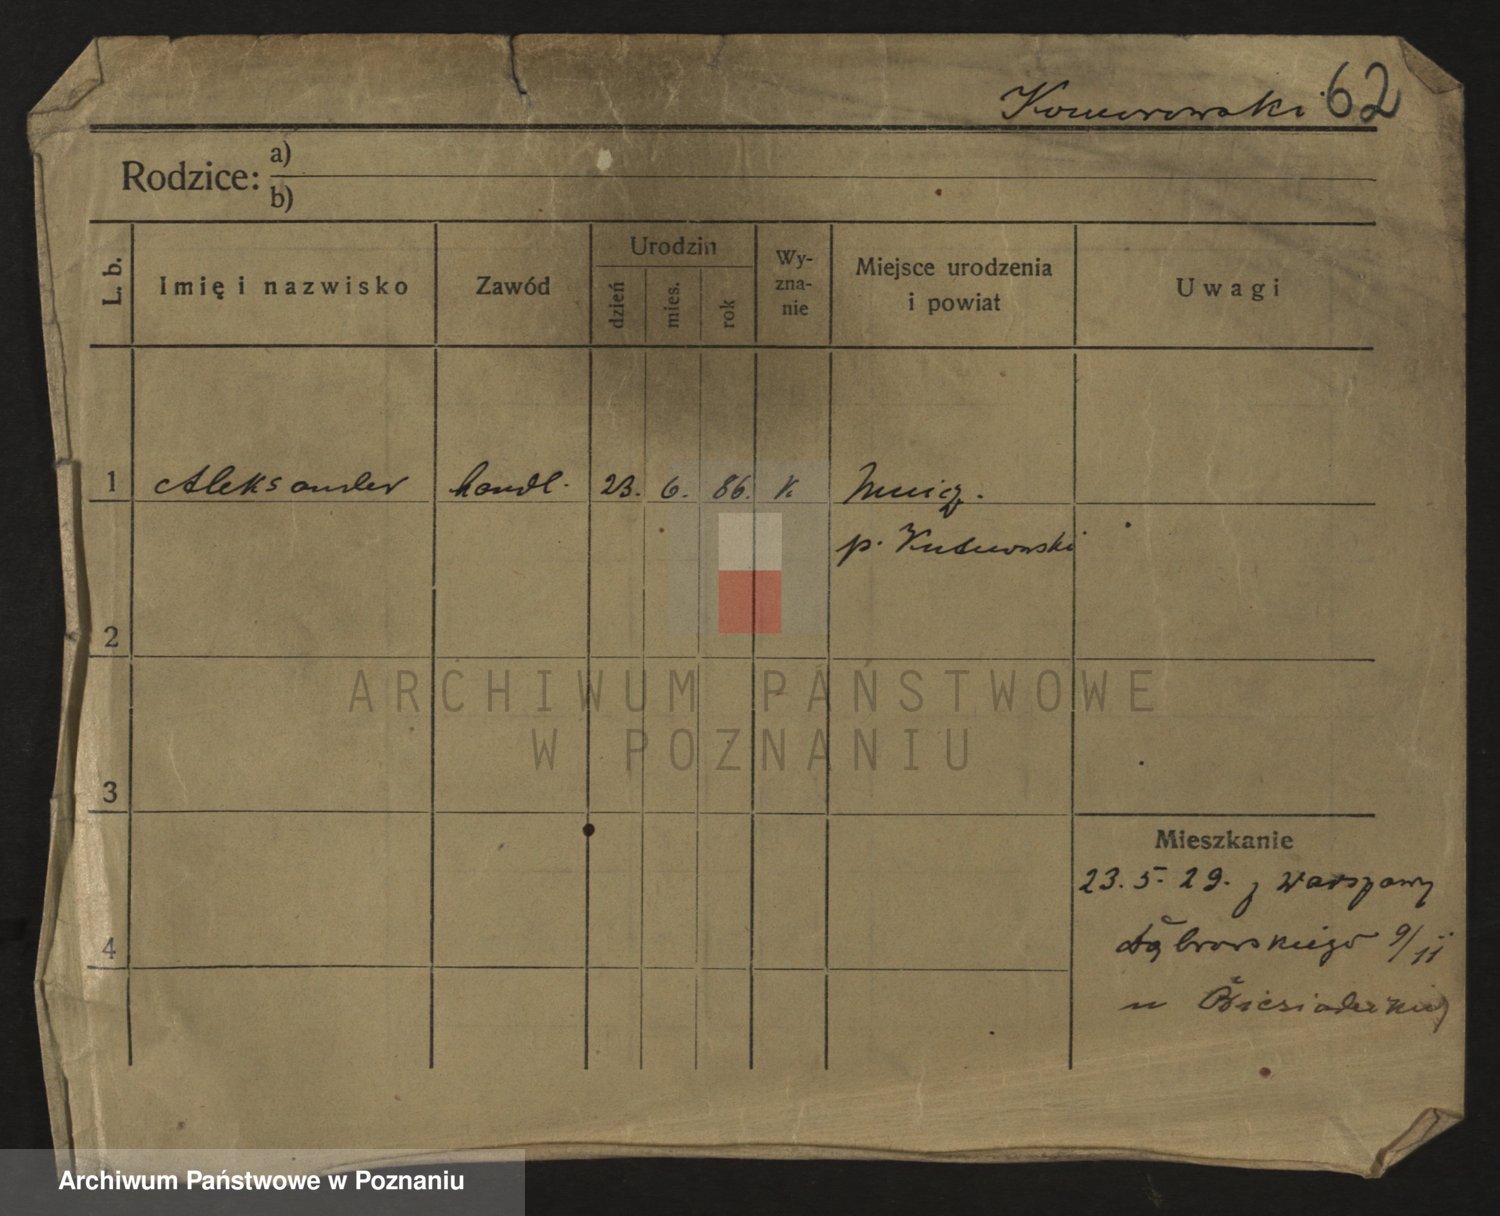 Komorowski 62
Rodzice: a)
b)
L. b.
Imię i nazwisko
Zawód
Urodzin
dzień
mies.
rok
Wy-
zna-
nie
Miejsce urodzenia
i powiat
Uwagi
1 Aleksander handl. 23. 6. 86. k.
p. Kutnowski
2
3
4
Mieszkanie
23. 5. 29. z Warszawy
Dąbrowskiego 9/11
u
ARCHIWUM PAŃSTWOWE
W POZNANIU
Archiwum Państwowe w Poznaniu